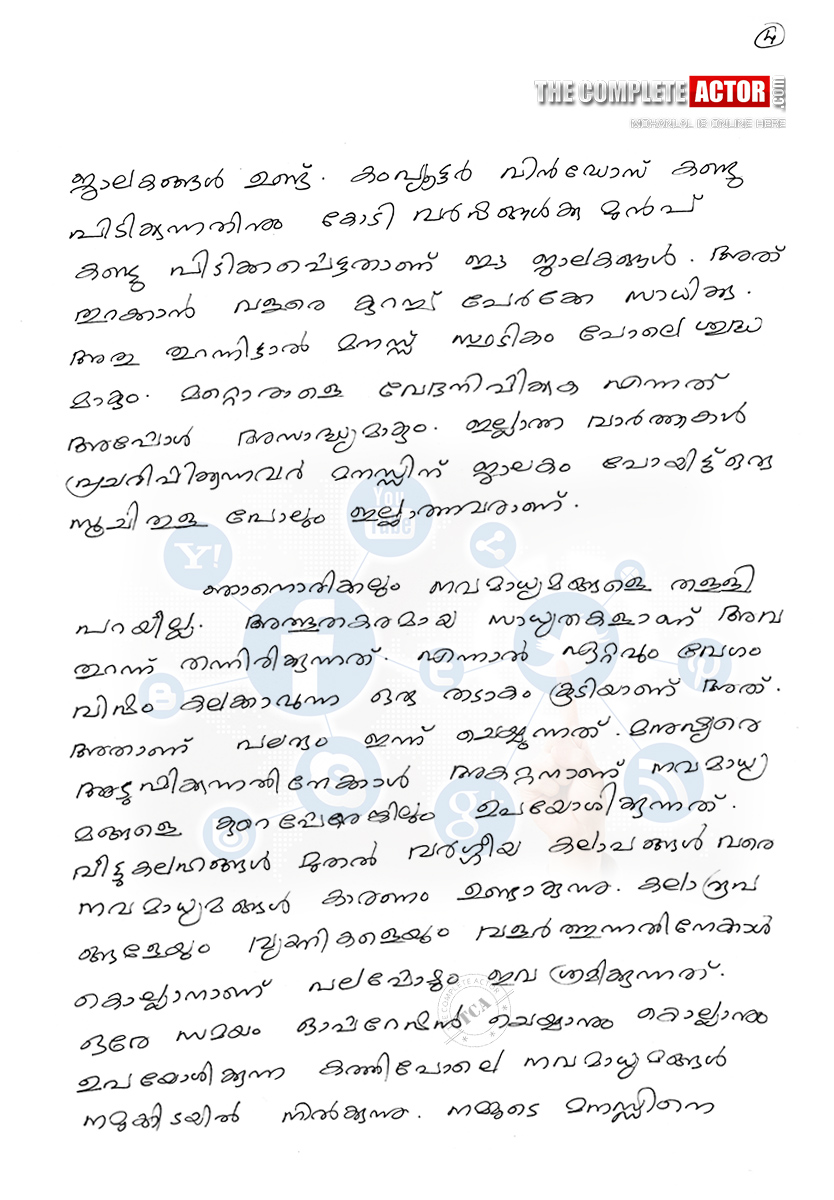 4
THE COMPLETE ACTOR.com
MOHANLAL IS ONLINE HERE
ജാലകങ്ങൾ ഉണ്ട്. കംപ്യൂട്ടർ വിൻഡോസ് കണ്ടു
പിടിക്കുന്നതിനും കോടി വർഷങ്ങൾക്കു മുൻപ്
കണ്ടു പിടിക്കപ്പെട്ടതാണ് ഈ ജാലകങ്ങൾ. അത്
തുറക്കാൻ വളരെ കുറച്ച് പേർക്കേ സാധിക്കൂ.
അതു തുറന്നിട്ടാൽ മനസ്സ് സ്ഫടികം പോലെ ശുദ്ധ
മാകും. മറ്റൊരാളെ വേദനിപ്പിക്കുക എന്നത്
അപ്പോൾ അസാദ്ധ്യമാകും. ഇല്ലാത്ത വാർത്തകൾ
പ്രചരിപ്പിക്കുന്നവർ മനസ്സിന് ജാലകം പോയിട്ട് ഒരു
സൂചിതുള പോലും ഇല്ലാത്തവരാണ്.
ഞാനൊരിക്കലും നവമാധ്യമങ്ങളെ തള്ളി
പറയില്ല. അത്ഭുതകരമായ സാധ്യതകളാണ് അവ
തുറന്ന് തന്നിരിക്കുന്നത്. എന്നാൽ ഏറ്റവും വേഗം
വിഷം കലക്കാവുന്ന ഒരു തടാകം കൂടിയാണ് അത്.
അതാണ് പലരും ഇന്ന് ചെയ്യുന്നത്. മനുഷ്യരെ
അടുപ്പിക്കുന്നതിനേക്കാൾ അകറ്റാനാണ് നവമാധ്യ
മങ്ങളെ കുറെപ്പേരെങ്കിലും ഉപയോഗിക്കുന്നത്.
വീട്ടുകലഹങ്ങൾ മുതൽ വർഗ്ഗീയ കലാപങ്ങൾ വരെ
നവമാധ്യമങ്ങൾ കാരണം ഉണ്ടാകുന്നു. കലാരൂപ
ങ്ങളേയും വ്യക്തികളെയും വളർത്തുന്നതിനേക്കാൾ
കൊല്ലാനാണ് പലപ്പോഴും ഇവ ശ്രമിക്കുന്നത്.
ഒരേ സമയം ഓപ്പറേഷൻ ചെയ്യാനും കൊല്ലാനും
ഉപയോഗിക്കുന്ന കത്തിപോലെ നവമാധ്യമങ്ങൾ
നമുക്കിടയിൽ നിൽക്കുന്നു. നമ്മുടെ മനസ്സിനെ
THE COMPLETE ACTOR
TCA
You Tube
Y!